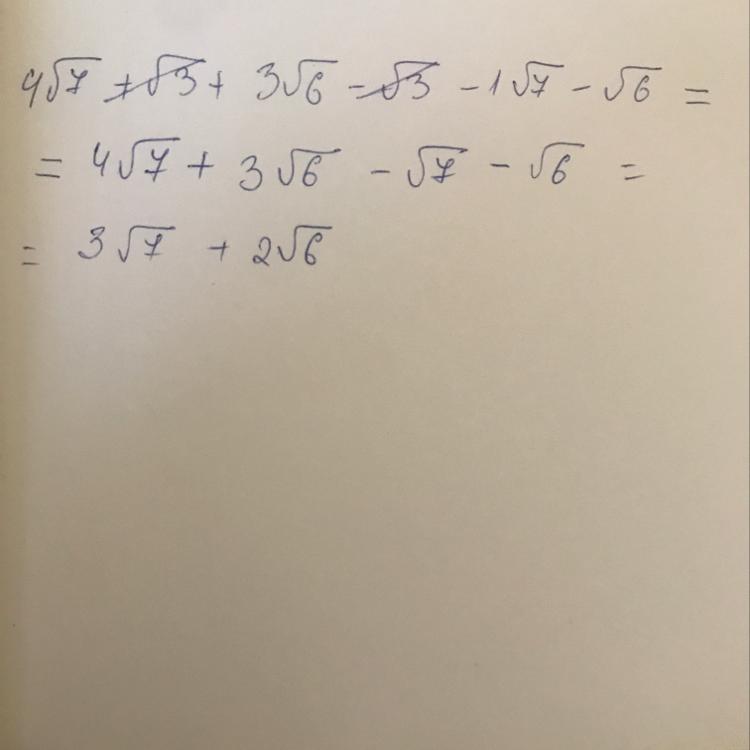 4√7 + √3 + 3√6 - √3 - 1√7 - √6 =
= 4√7 + 3√6 - √7 - √6 =
= 3√7 + 2√6